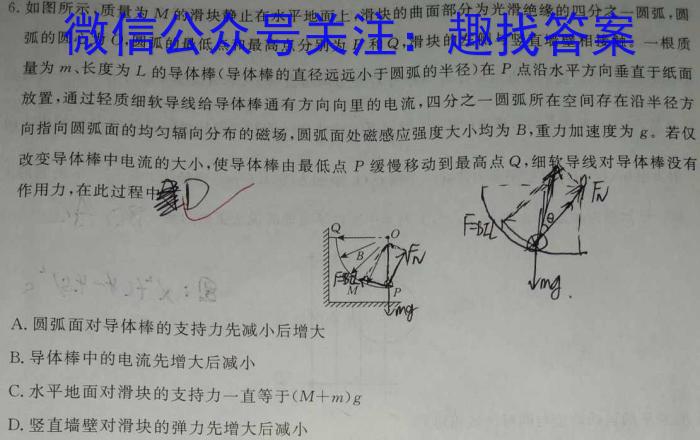 6. 如图所示,质量为 M 的滑块静止在水平地面上,滑块的曲面部分为光滑绝缘的四分之一圆弧,圆
微信公众号关注：趣找答案
弧的圆 最低点和最高点分别为 P 和 Q,滑块 一根质
量为 m、长度为 L 的导体棒(导体棒的直径远远小于圆弧的半径)在 P 点沿水平方向垂直于纸面
放置,通过轻质细软导线给导体棒通有方向向里的电流,四分之一圆弧所在空间存在沿半径方
向指向圆弧面的均匀辐向分布的磁场,圆弧面处磁感应强度大小均为 B,重力加速度为 g。若仅
改变导体棒中电流的大小,使导体棒由最低点 P 缓慢移动到最高点 Q,细软导线对导体棒没有
作用力,在此过程中 D
Q O
B
F=BIL
FN
M P
mg
F=BIL
θ
FN
mg
A. 圆弧面对导体棒的支持力先减小后增大
B. 导体棒中的电流先增大后减小
C. 水平地面对滑块的支持力一直等于(M+m)g
D. 竖直墙壁对滑块的弹力先增大后减小